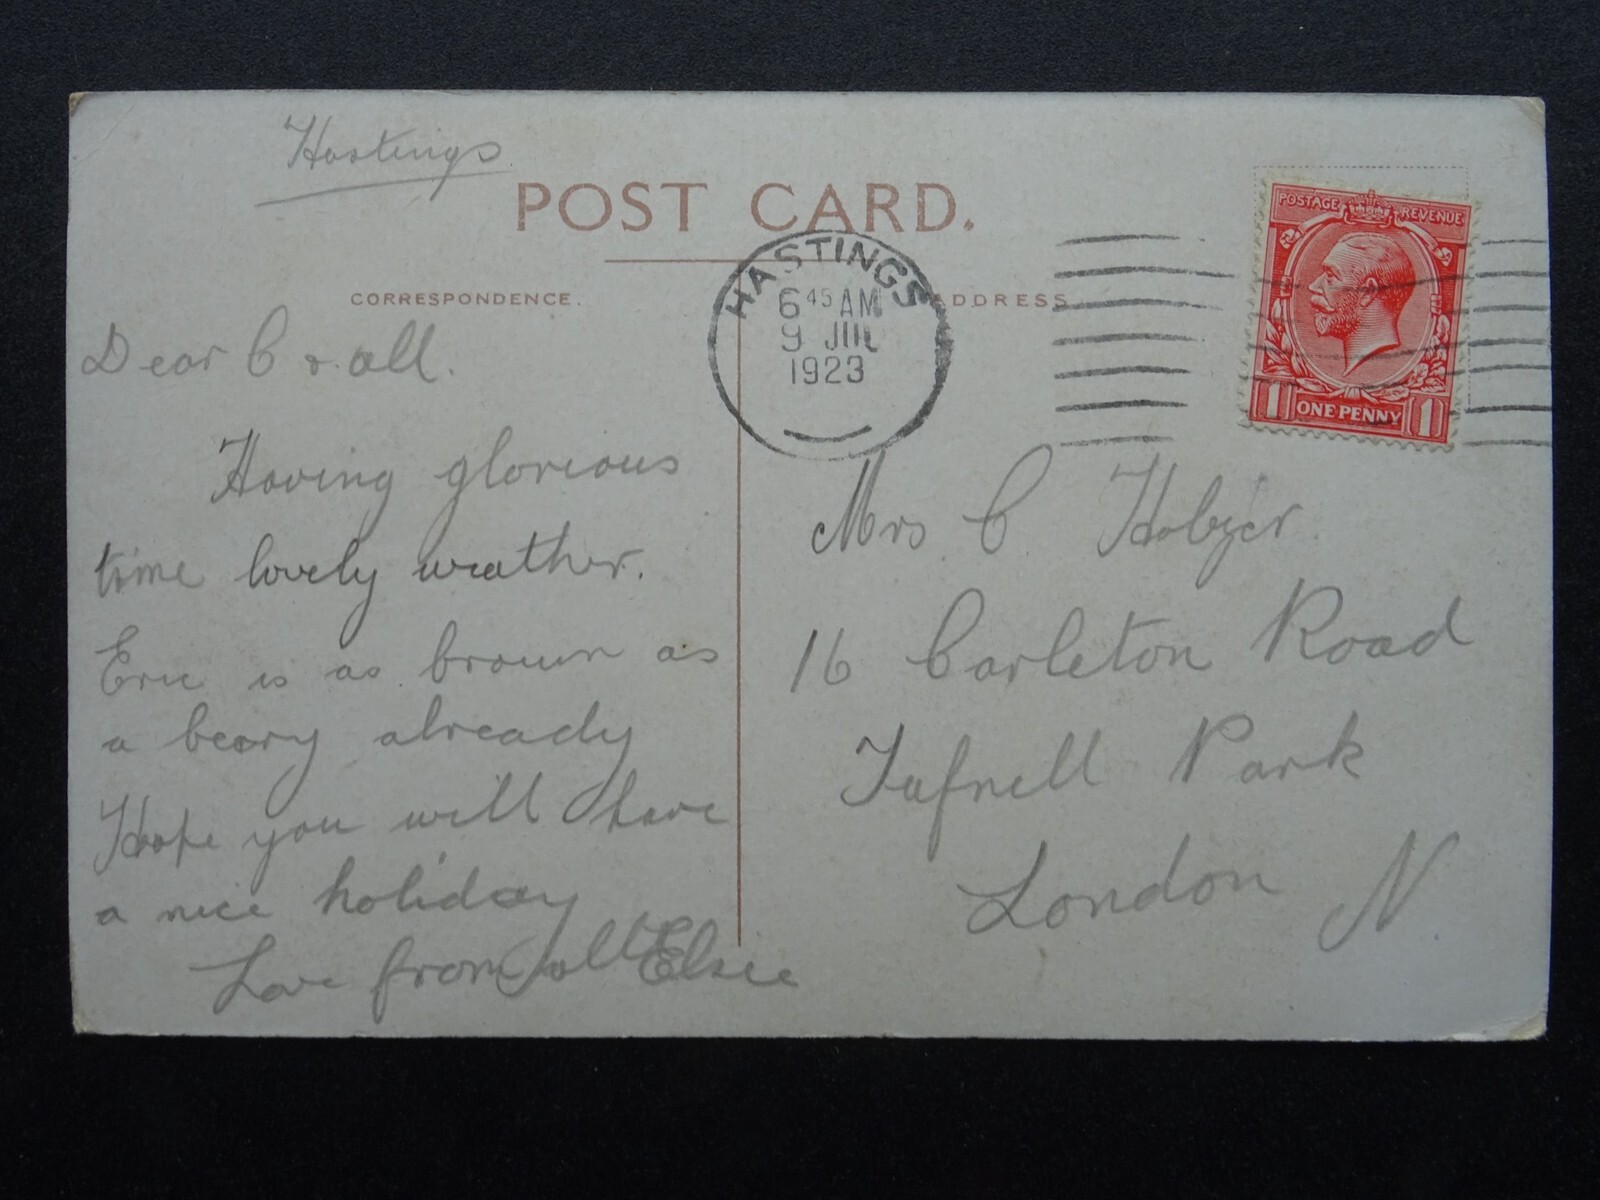 Hastings
POST CARD.
CORRESPONDENCE.
ADDRESS
HASTINGS
6 45 AM
9 JUL
1923
POSTAGE REVENUE
1 ONE PENNY 1
Dear C & all.
Having glorious
time lovely weather.
Eric is as brown as
a beary already
Hope you will have
a nice holiday
Love from all Elsie
Mrs C
16 Carleton Road
Tufnell Park
London N